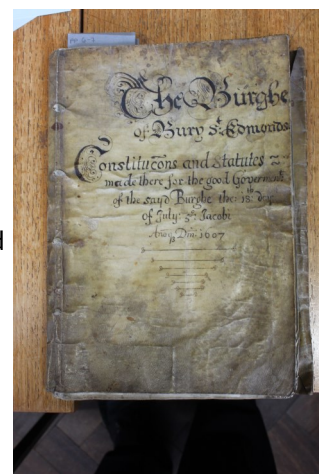 The Burghe
of Bury St Edmonds
Constitucõns and Statutes
made there for the good Governmt
of the sayd Burghe the: 18th day
of July: 5to Jacobi
Anoq Dni: 1607
d